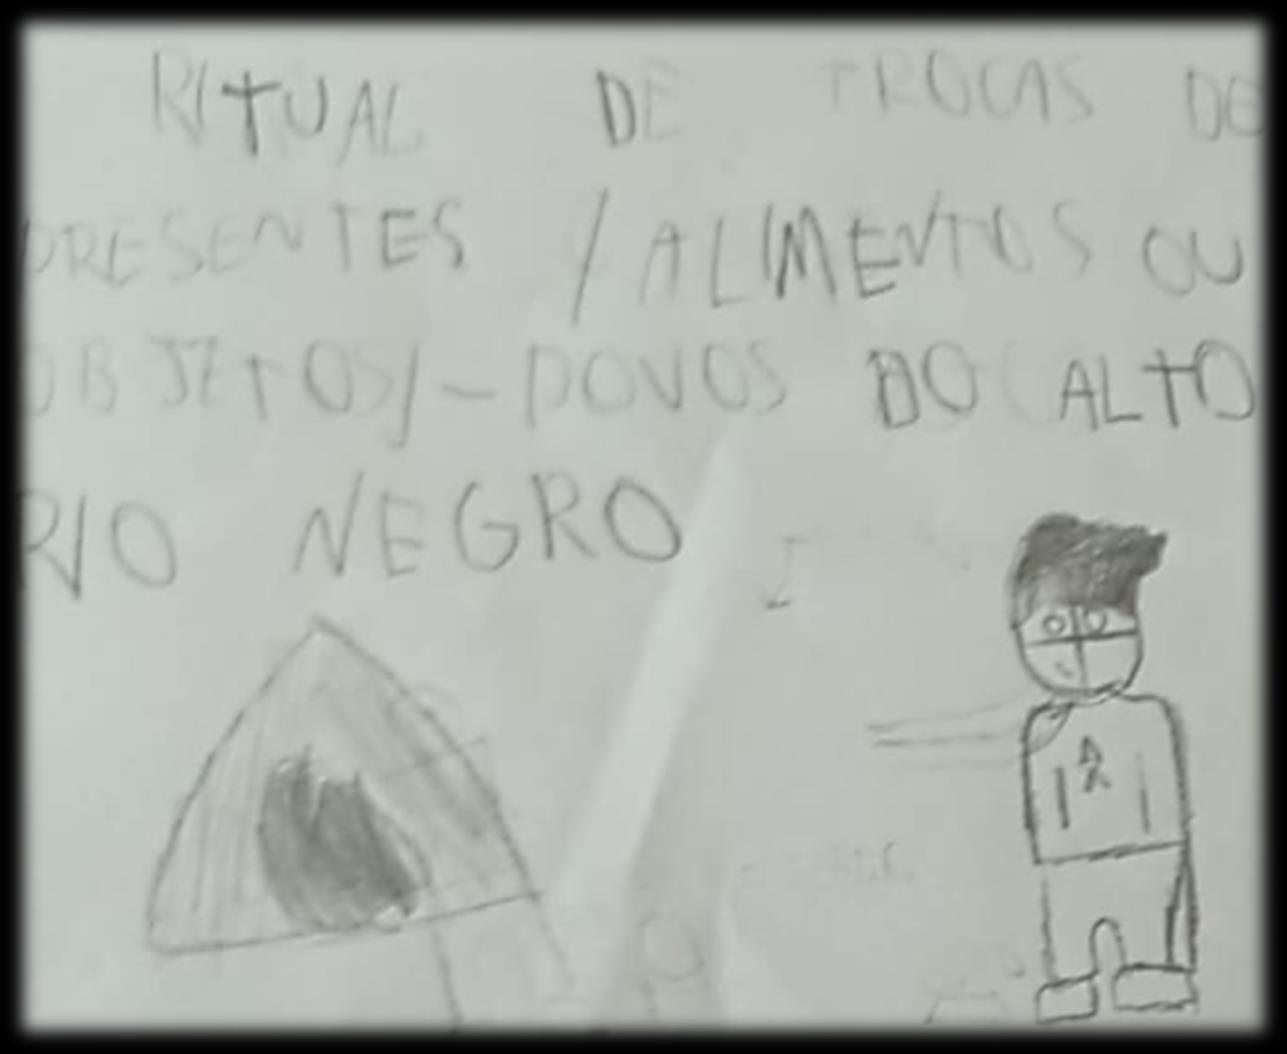 RITUAL DE TROCAS DE
PRESENTES / ALIMENTOS OU
OBJETOS/ - POVOS DO ALTO
RIO NEGRO